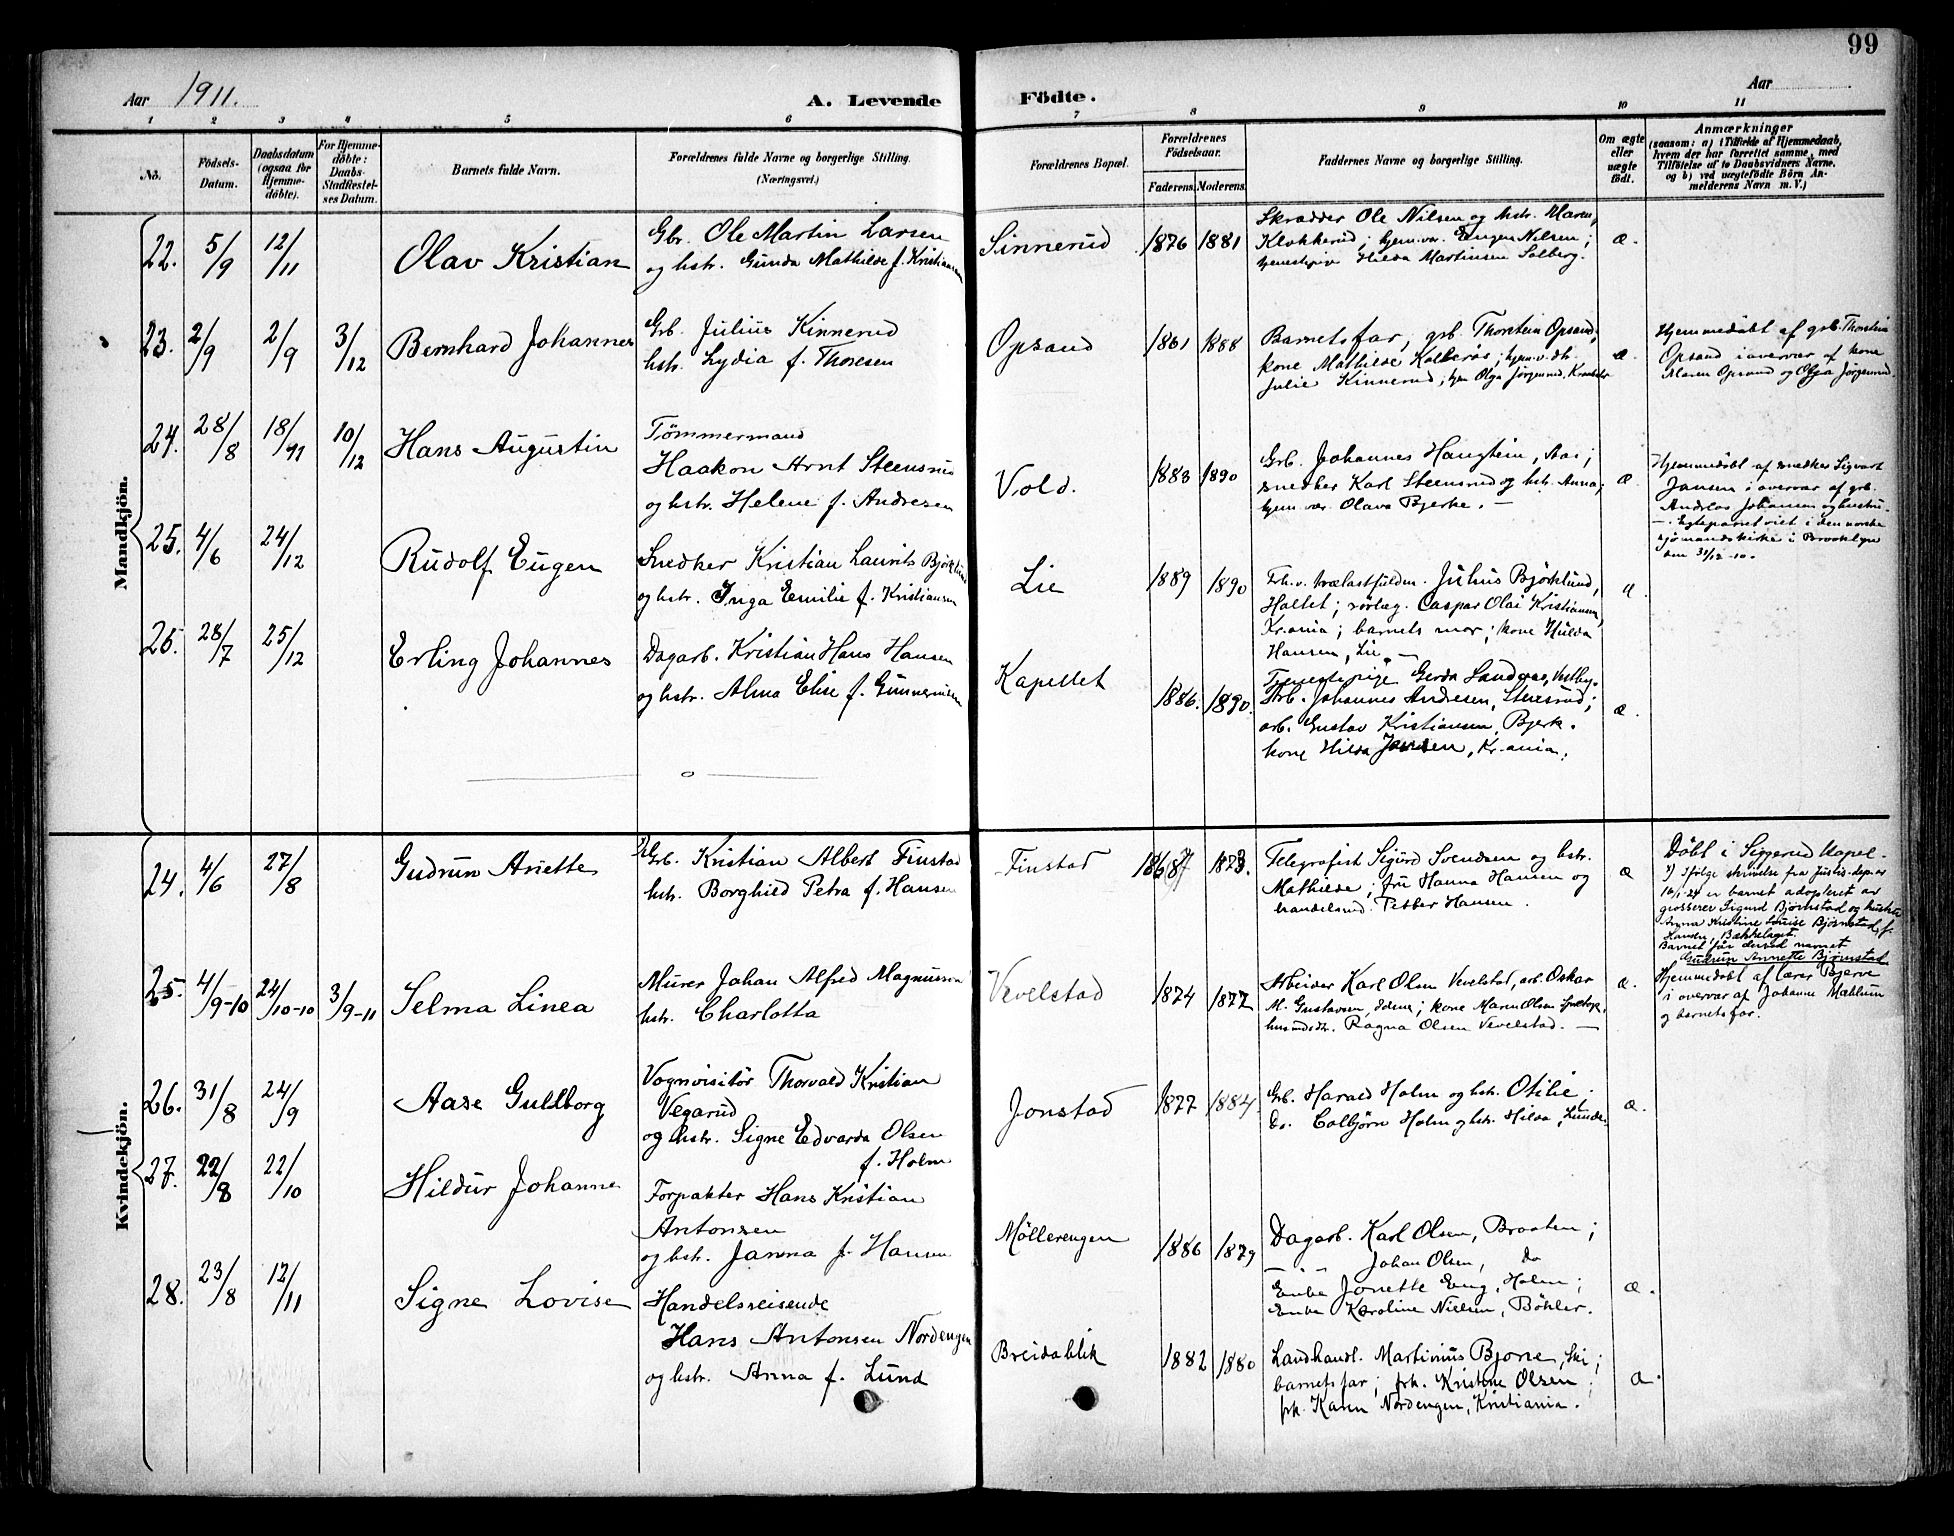 99
Aar 1911.
A. Levende Födte.
Aar
1 2 3 4 5 6 7 8 9 10 11
No.
Födsels-Datum.
Daabsdatum (ogsaa for Hjemmedöbte).
For Hjemmedöbte: Daabs-Stadfæstelses Datum.
Barnets fulde Navn.
Forældrenes fulde Navne og borgerlige Stilling.
(Næringsvei.)
Forældrenes Bopæl.
Forældrenes Födselsaar.
Faderens. Moderens.
Faddernes Navne og borgerlige Stilling.
Om ægte eller uægte födt.
Anmærkninger
(saasom: a) i Tilfælde af Hjemmedaab, hvem der har forrettet samme, med Tilföielse af to Daabsvidners Navne, og b) ved uægtefödte Börn Anmelderens Navn m. V.)
Mandkjön.
22. 5/9 12/11 Olav Kristian
Gbr. Ole Martin Larsen
og hstr. Gunda Mathilde f. Kristiansen
Sinnerud 1876 1881
Skrædder Ole Nilsen og hstr. Maren,
Klokkerud; hjem.vær. Eugen Nilsen;
tjenestepige Hilda Martinsen Solberg.
æ.
23. 2/9 2/9 3/12 Bernhard Johannes
Grb. Julius Kinnerud
hstr. Lydia f. Thoresen
Opsand 1861 1888
Barnets far, grb. Thorstein Opsand,
kone Mathilde Kolberøs; hjem.v. dtr.
Julie Kinnerud; hjem Olga Jørgensrud,
æ
Hjemmedøbt af grb. Thorstein
Opsand i overvær af kone
Maren Opsand og Olga Jørgensrud.
24. 28/8 18/11 10/12 Hans Augustin
Tømmermand
Haakon Arnt Steensrud
og hstr. Helene f. Andresen
Vold. 1883 1890
Grb. Johannes Haugtein, Aas;
snedker Karl Steensrud og hstr. Anna;
hjem.vær. Olava Bjerke. —
æ.
Hjemmedøbt af snedker Sigvart
Jansen i overvær af grb.
Andreas Johansen og hustru
—. Egteparret viet i den norske
sjømandskirke i Brooklyn
den 31/12-10.
25. 4/6 24/12 Rudolf Eugen
Snedker Kristian Laurits Bjørklund
og hstr. Inga Emilie f. Kristiansen
Lie 1889 1890
Frh.v. trælastfuldm. Julius Bjørklund,
Holtet; rørlæg. Caspar Olai Kristiansen,
Kr.ania; barnets mor; kone Hulda
Hansen, Lie. —
æ.
26. 28/7 25/12 Erling Johannes
Dagarb. Kristian Hans Hansen
og hstr. Alma Elise f. Gunnersen
Kapellet 1886. 1890.
Tjenestepige Gerda Sandaas, Vestby.
Arb. Johannes Andresen, Steensrud;
arb. Gustav Kristiansen, Bjerk.
kone Hilda Jensen, Kr.ania.
æ.
Kvindekjön.
24. 4/6 27/8 Gudrun Anette
Grb. Kristian Albert Finstad
hstr. Borghild Petra f. Hansen
Finstad 1867 1873.
Telegrafist Sigurd Svendsen og hstr.
Mathilde; fru Hanna Hansen og
handelsmd. Petter Hansen.
æ
Døbt i Siggerud kapel.
Ifølge skrivelse fra Justis-dep. av
16/1-24 er barnet adopteret av
grosserer Sigurd Bjørnstad og hustru
Anna Kristine Louise Bjørnstad, f.
Hansen, Bækkelaget.
Barnet får derved navnet
Gudrun Annette Bjørnstad
25. 4/9-10 24/10-10 3/9-11 Selma Linea
Murer Johan Alfred Magnussen
hstr. Charlotta
Vevelstad 1874 1877
Arbeider Karl Olsen Vevelstad, arb. Oskar
M. Gustavsen, Idem; kone Maren Olsen
husmdsdtr. Ragna Olsen Vevelstad. —
æ.
Hjemmedøbt af lærer Bjerve
i overvær af Johanne Mæhlum
og barnets far.
26. 31/8 24/9 Aase Guldborg
Vognvisitør Thorvald Kristian
Vegarud
og hstr. Signe Edvarda Olsen
f. Holm
Jonstad 1877 1884.
Grb. Harald Holm og hstr. Otilie;
Do. Colbjørn Holm og hstr. Hilda, Lunde.
æ.
27. 22/8 22/10 Hildur Johanne
Forpakter Hans Kristian
Antonsen
og hstr. Janna f. Hansen
Møllerengen 1886 1879
Dagarb. Karl Olsen, Braaten;
— " — Johan Olsen, Do
Enke Jonette Eng, Holm;
Enke Karoline Nielsen, Bøhler.
æ.
28. 23/8 12/11 Signe Lovise
Handelsreisende
Hans Antonsen Nordengen
og hstr. Anna f. Lund
Breidablik 1882 1880
Landhandl. Martinius Bjone, Ski;
barnets far; frk. Kristine Olsen;
frk. Karen Nordengen, Kristiania.
æ.